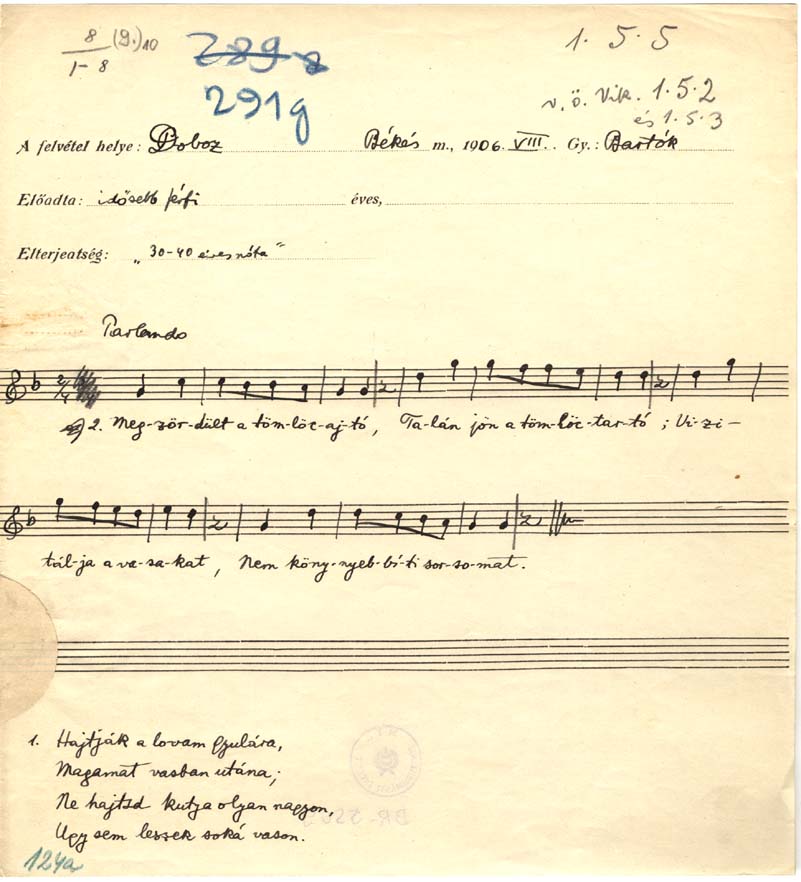 8 (9.) 10
1-8
289 a
291g
1. 5. 5
v. ö. Vik. 1. 5. 2
és 1. 5. 3
A felvétel helye: Doboz Békés m., 1906. VIII. Gy.: Bartók
Előadta: idősebb férfi éves,
Elterjeatség: „30-40 éves nóta”
Parlando
2/4
2. Meg-zör-dült a töm-löc-aj-tó, Ta-lán jön a töm-löc-tar-tó; Vi-zi-
tál-ja a va-sa-kat, Nem köny-nyeb-bí-ti sor-so-mat.
1. Hajtják a lovam Gyulára,
Magamat vasban utána;
Ne hajtsd kutya olyan nagyon,
Ugy sem leszek soká vason.
124a